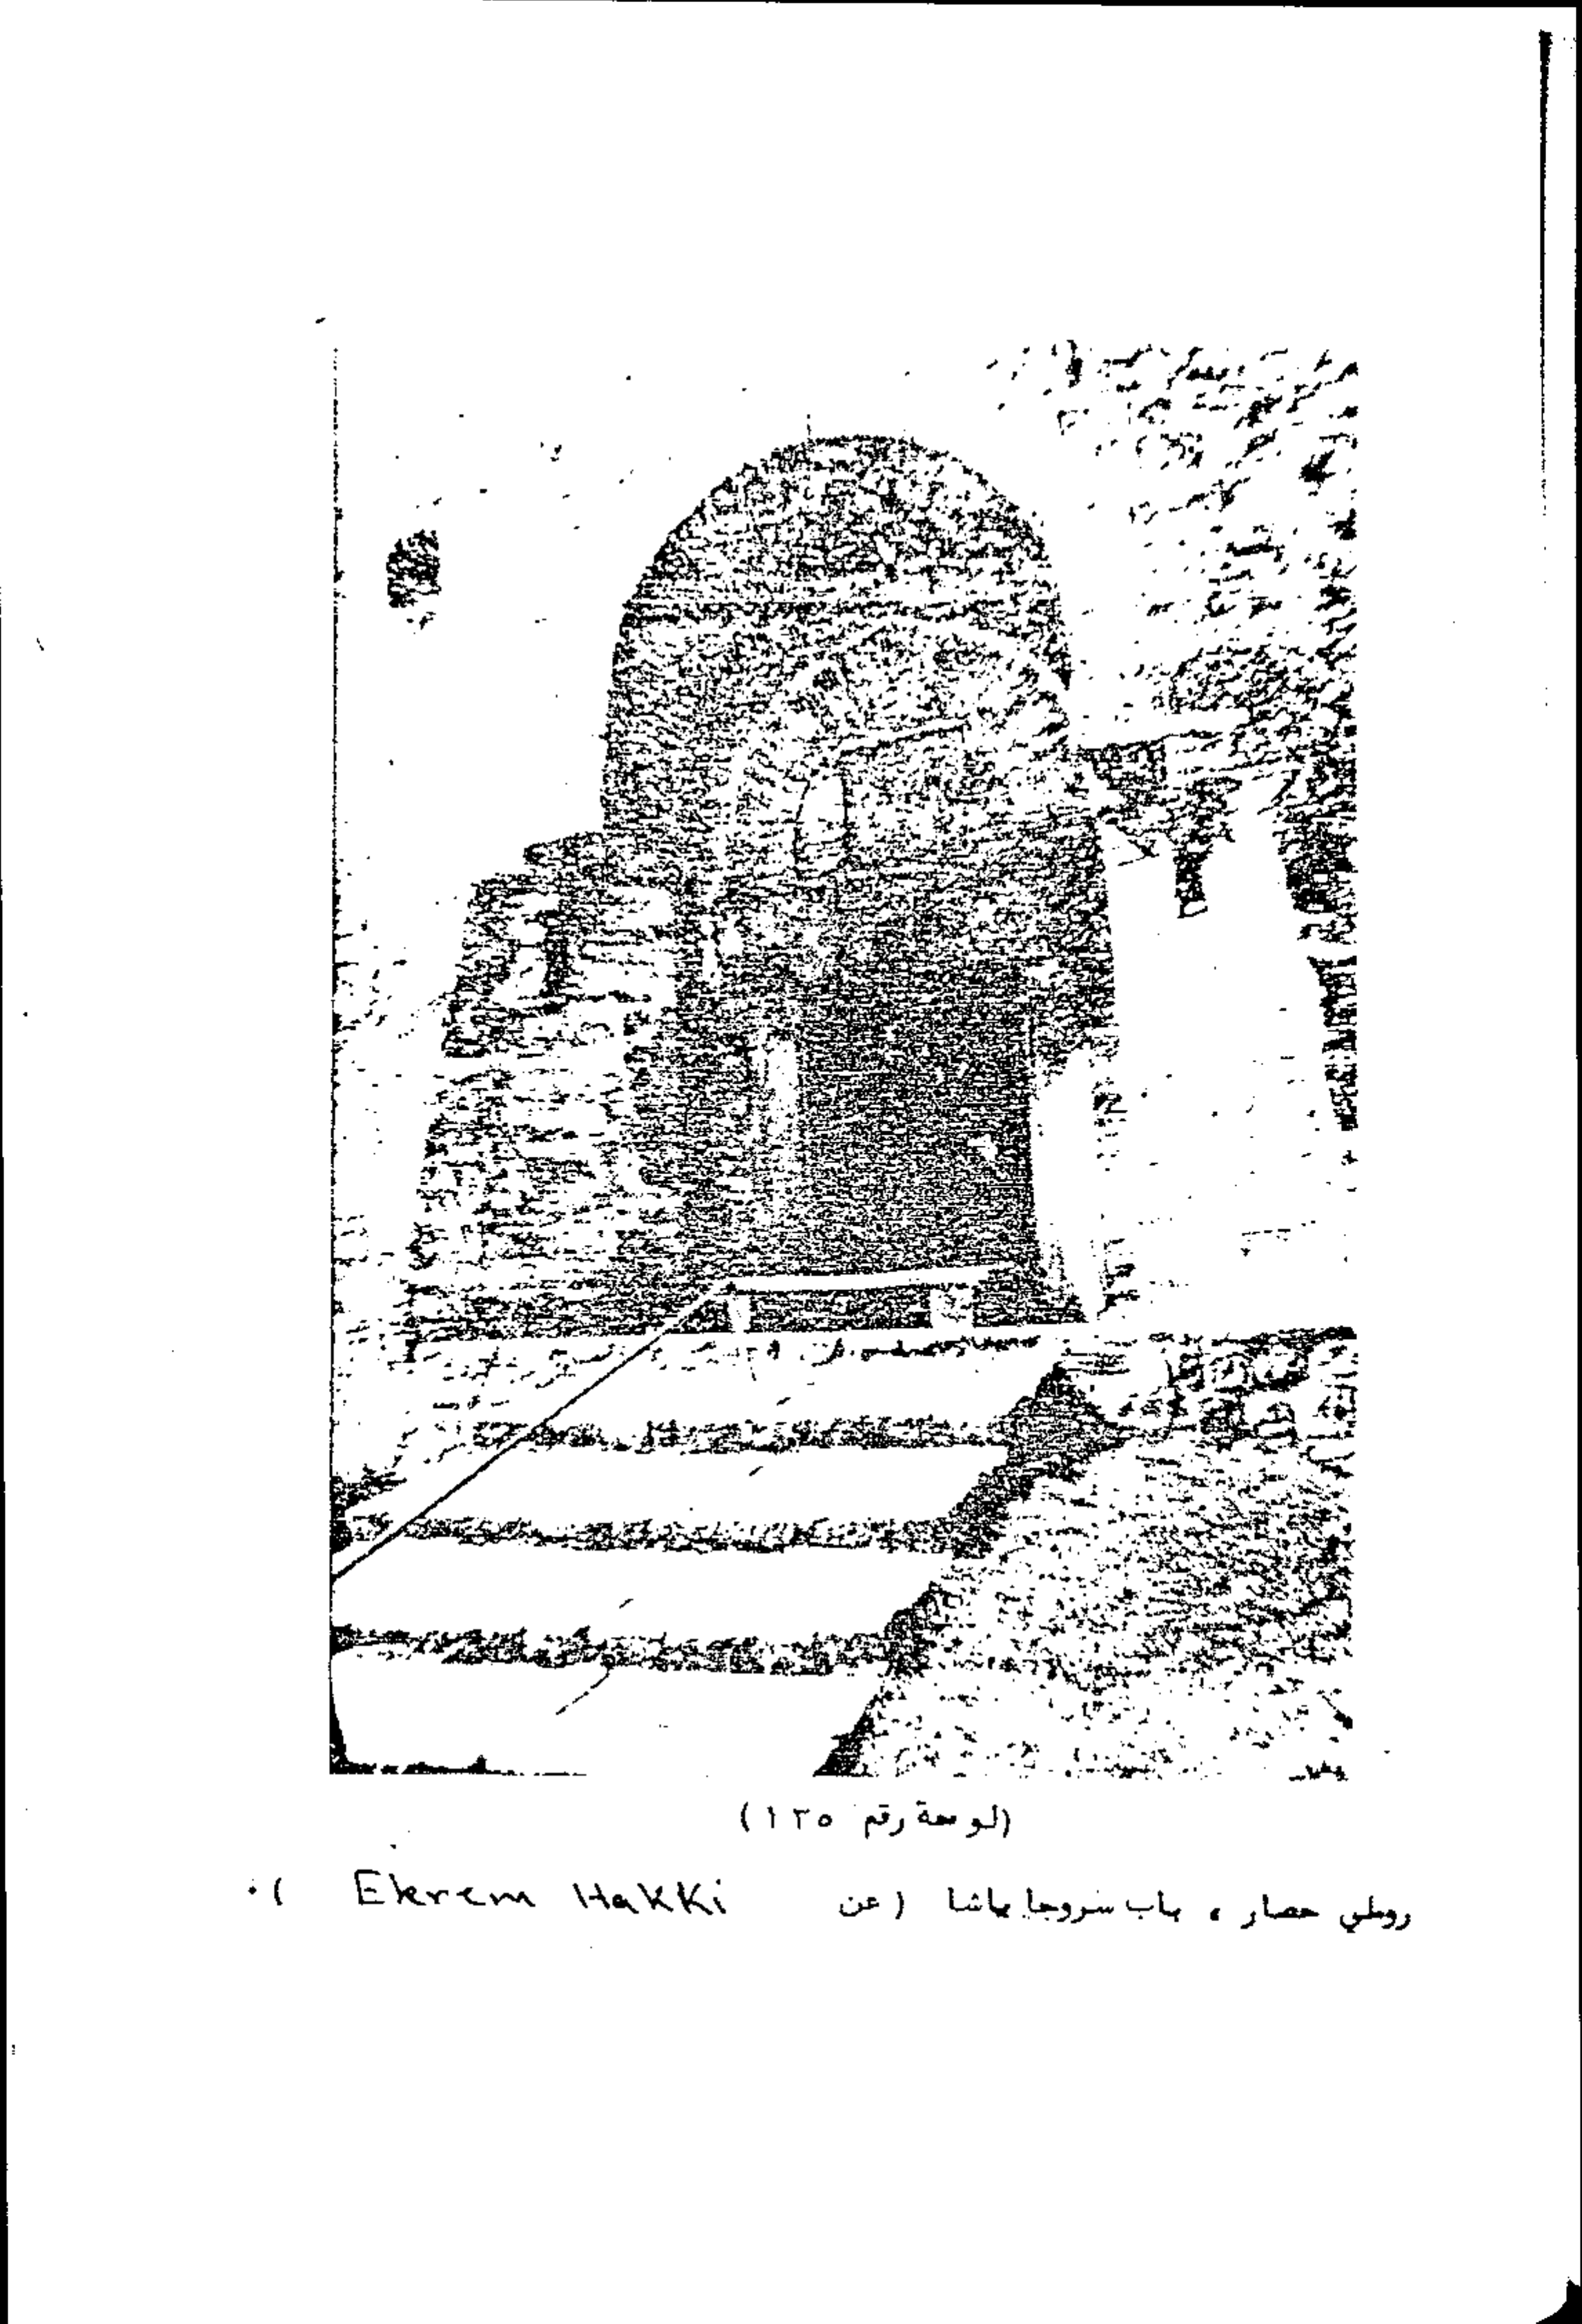 (لوحة رقم ١٢٥)
روملي حصار ، باب سروجا باشا (عن Ekrem Hakki ) .